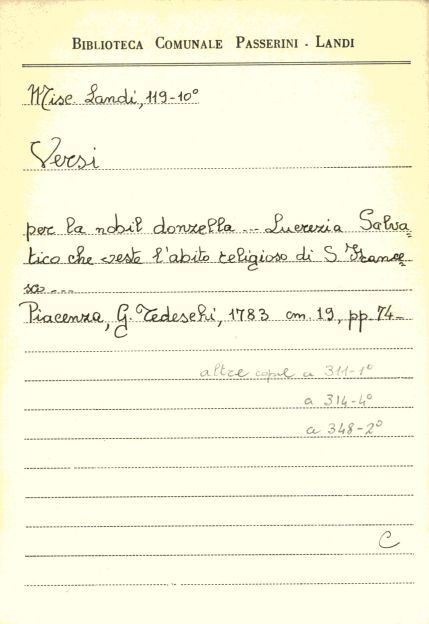 BIBLIOTECA COMUNALE PASSERINI - LANDI
Misc. Landi, 119-10°
Versi
per la nobil donzella ... Lucrezia Salva=
tico che veste l'abito religioso di S. France=
sco ...
Piacenza, G. Tedeschi, 1783 cm. 19, pp. 74-
altre copie a 311-1°
a 314-4°
a 348-2°
C